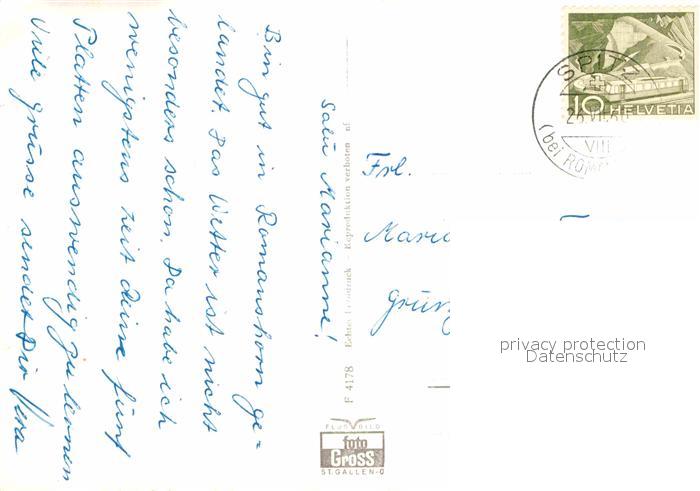 Salü Marianne!
Bin gut in Romanshorn ge-
landet. Das Wetter ist nicht
besonders schon. Da habe ich
wenigstens zeit deine fünf
Platten auswendig zu lernen
Viele grüsse sendet Dir Vera
F 4178 Echte Reproduktion verboten nf
FLUGBILD
foto
Gross
ST. GALLEN-O
SPITZ
VIII
(bei ROM
10 HELVETIA
Frl.
Mari
Grün
privacy protection
Datenschutz